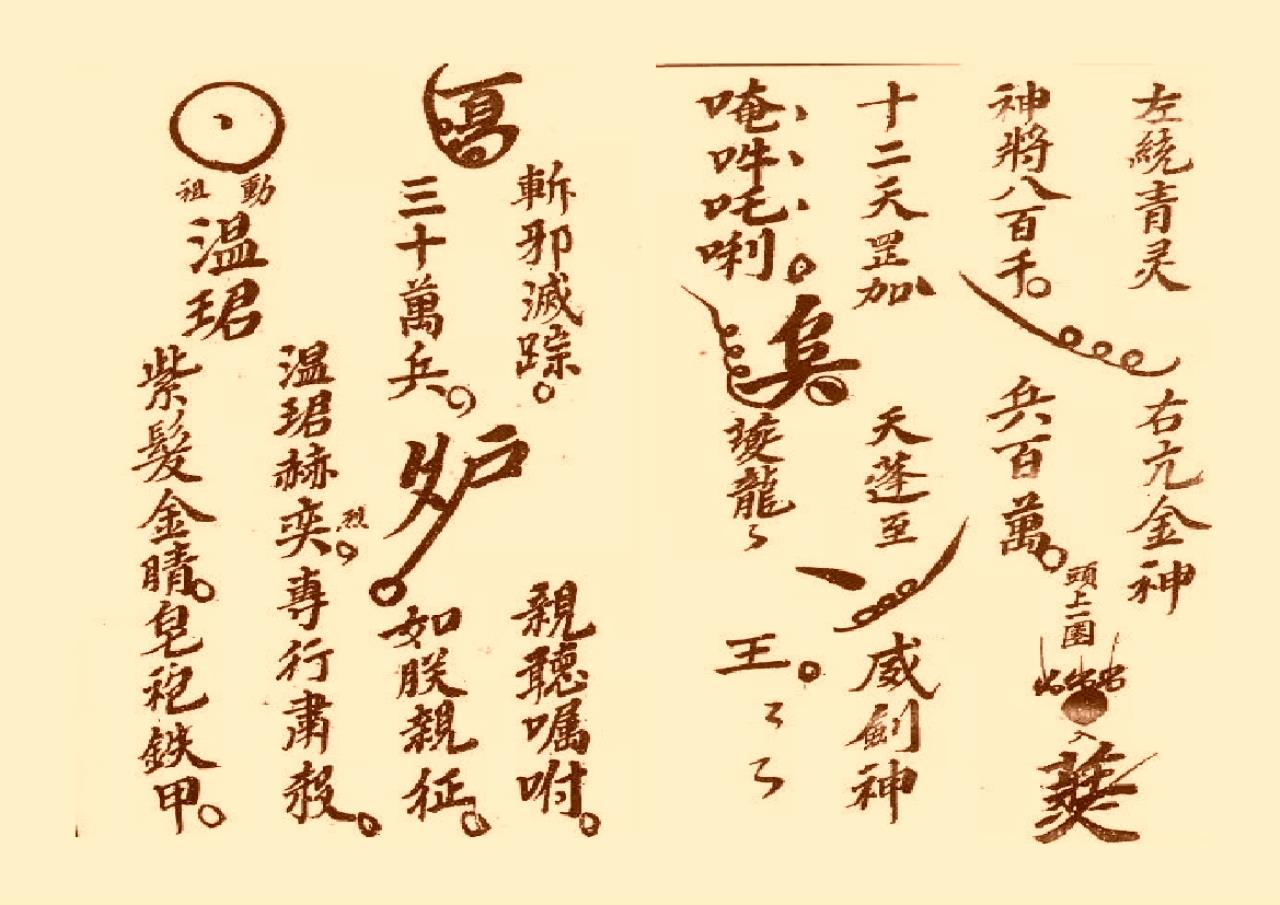 左繞青灵
右亢金神
神將八百千
兵百萬
頭上一圈
十二天罡加
天蓬至
威劍神
唵吽吒唎
龍
王
斬邪滅踪
親聽囑咐
三十萬兵
如朕親征
溫珺赫奕
烈
專行肅殺
動
祖
溫珺
紫髮金睛皂袍鉄甲